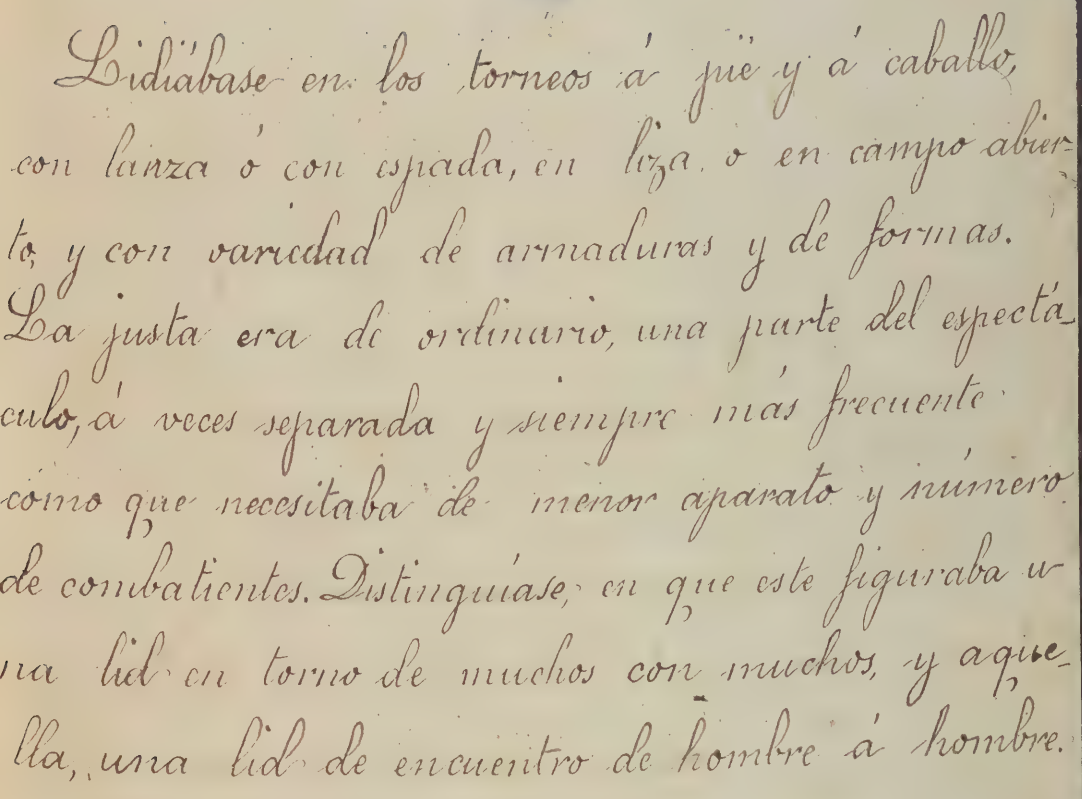 Lidiábase en los torneos á pie y á caballo,
con lanza ó con espada, en liza o en campo abier-
to, y con variedad de armaduras y de formas.
La justa era de ordinario, una parte del espectá-
culo, á veces separada y siempre más frecuente
como que necesitaba de menor aparato y número
de combatientes. Distinguíase, en que este figuraba u-
na lid en torno de muchos con muchos, y aque-
lla, una lid de encuentro de hombre á hombre.